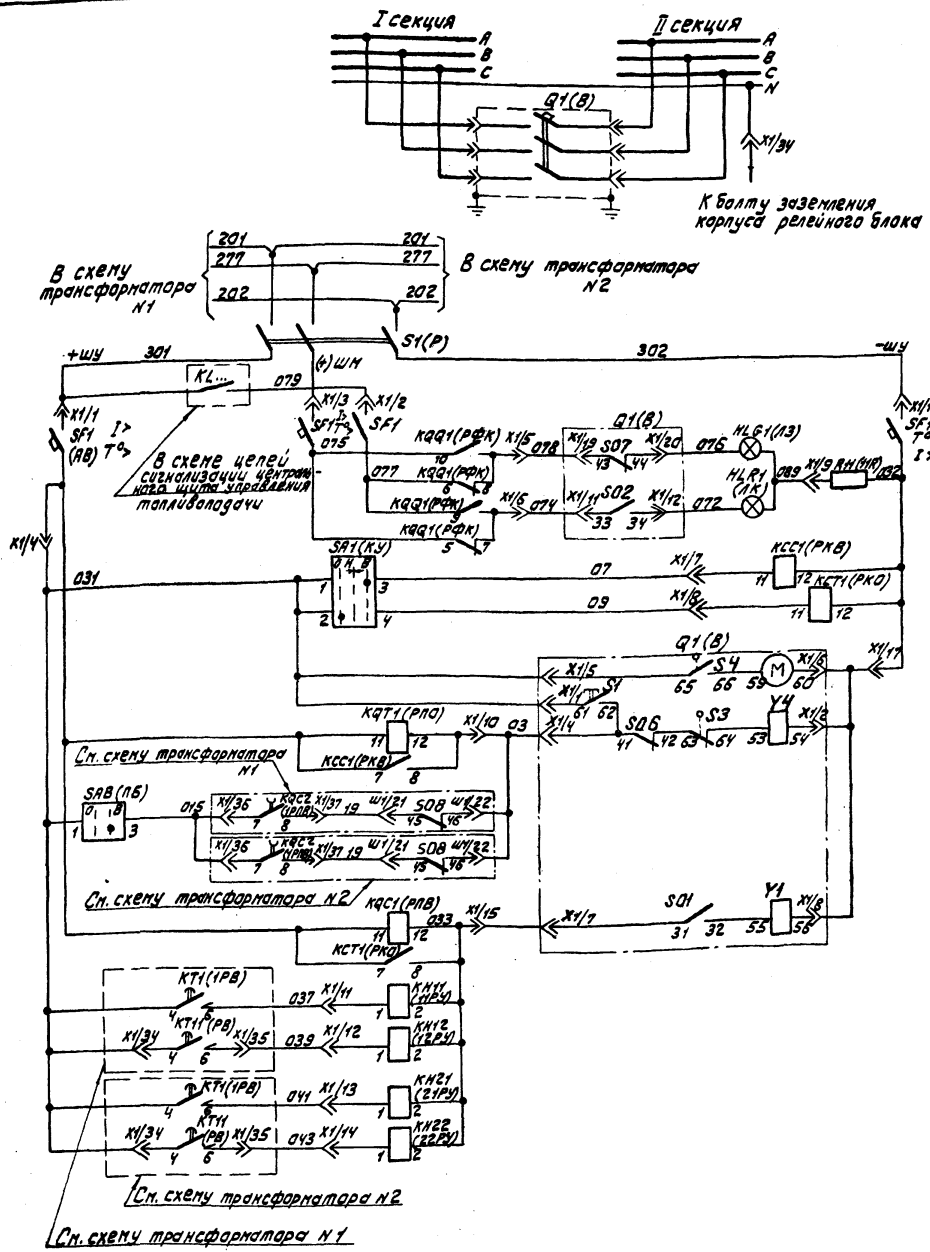 I секция
II секция
A
B
C
A
B
C
N
Q1(В)
X1/34
К болту заземления
корпуса релейного блока
201
201
277
277
202
202
В схему
трансформатора
N1
В схему трансформатора
N2
S1(Р)
+ШУ
301
(+)ШМ
302
-ШУ
KL...
079
X1/1
X1/3
X1/2
SF1
(АВ)
I>
T°>
SF1
I>
T°>
SF1
075
077
В схеме цепей
сигнализации централь-
ного щита управления
топливоподачи
KQQ1(РФК)
10
KQQ1(РФК)
6
8
KQQ1(РФК)
9
KQQ1(РФК)
5
7
X1/5
078
X1/6
074
Q1(В)
X1/19
SQ7
X1/20
43
44
X1/11
SQ2
X1/12
33
34
076
HLG1(ЛЗ)
072
HLR1
(ЛК)
089
X1/9
032
SF1
T°>
I>
X1/4
031
SA1(КУ)
О Н В
1
3
2
4
07
X1/7
KCC1(РКВ)
11
12
09
X1/8
KCT1(РКО)
11
12
Q1(В)
X1/5
S4
65
66
M
59
60
X1/6
X1/17
X1/1
S1
61
62
X1/4
SQ6
41
42
S3
63
64
Y4
53
54
X1/2
KQT1(РПО)
11
12
X1/10
03
KCC1(РКВ)
7
8
См. схему трансформатора
N1
SAB(ПБ)
О В
1
3
015
X1/36
KQC2
(1РПВ)
7
8
X1/37
19
Ш1/21
SQ8
45
46
Ш1/22
X1/36
KQC2
(1РПВ)
7
8
X1/37
19
Ш1/21
SQ8
45
46
Ш1/22
См. схему трансформатора N2
KQC1(РПВ)
11
12
033
X1/15
KCT1(РКО)
7
8
X1/7
SQ1
31
32
Y1
55
56
X1/8
KT1(1РВ)
4
6
037
X1/11
KH11
(11РУ)
1
2
X1/34
KT11(РВ)
4
6
X1/35
039
X1/12
KH12
(12РУ)
1
2
KT1(1РВ)
4
6
041
X1/13
KH21
(21РУ)
1
2
X1/34
KT11
(РВ)
4
6
X1/35
043
X1/14
KH22
(22РУ)
1
2
См. схему трансформатора N2
См. схему трансформатора N1